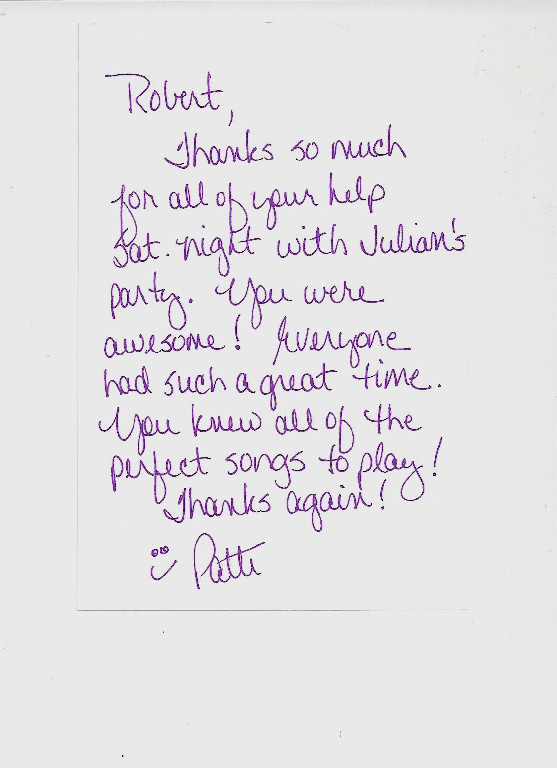 Robert,
Thanks so much
for all of your help
Sat. night with Julian's
party. You were
awesome! Everyone
had such a great time.
You knew all of the
perfect songs to play!
Thanks again!
Patti